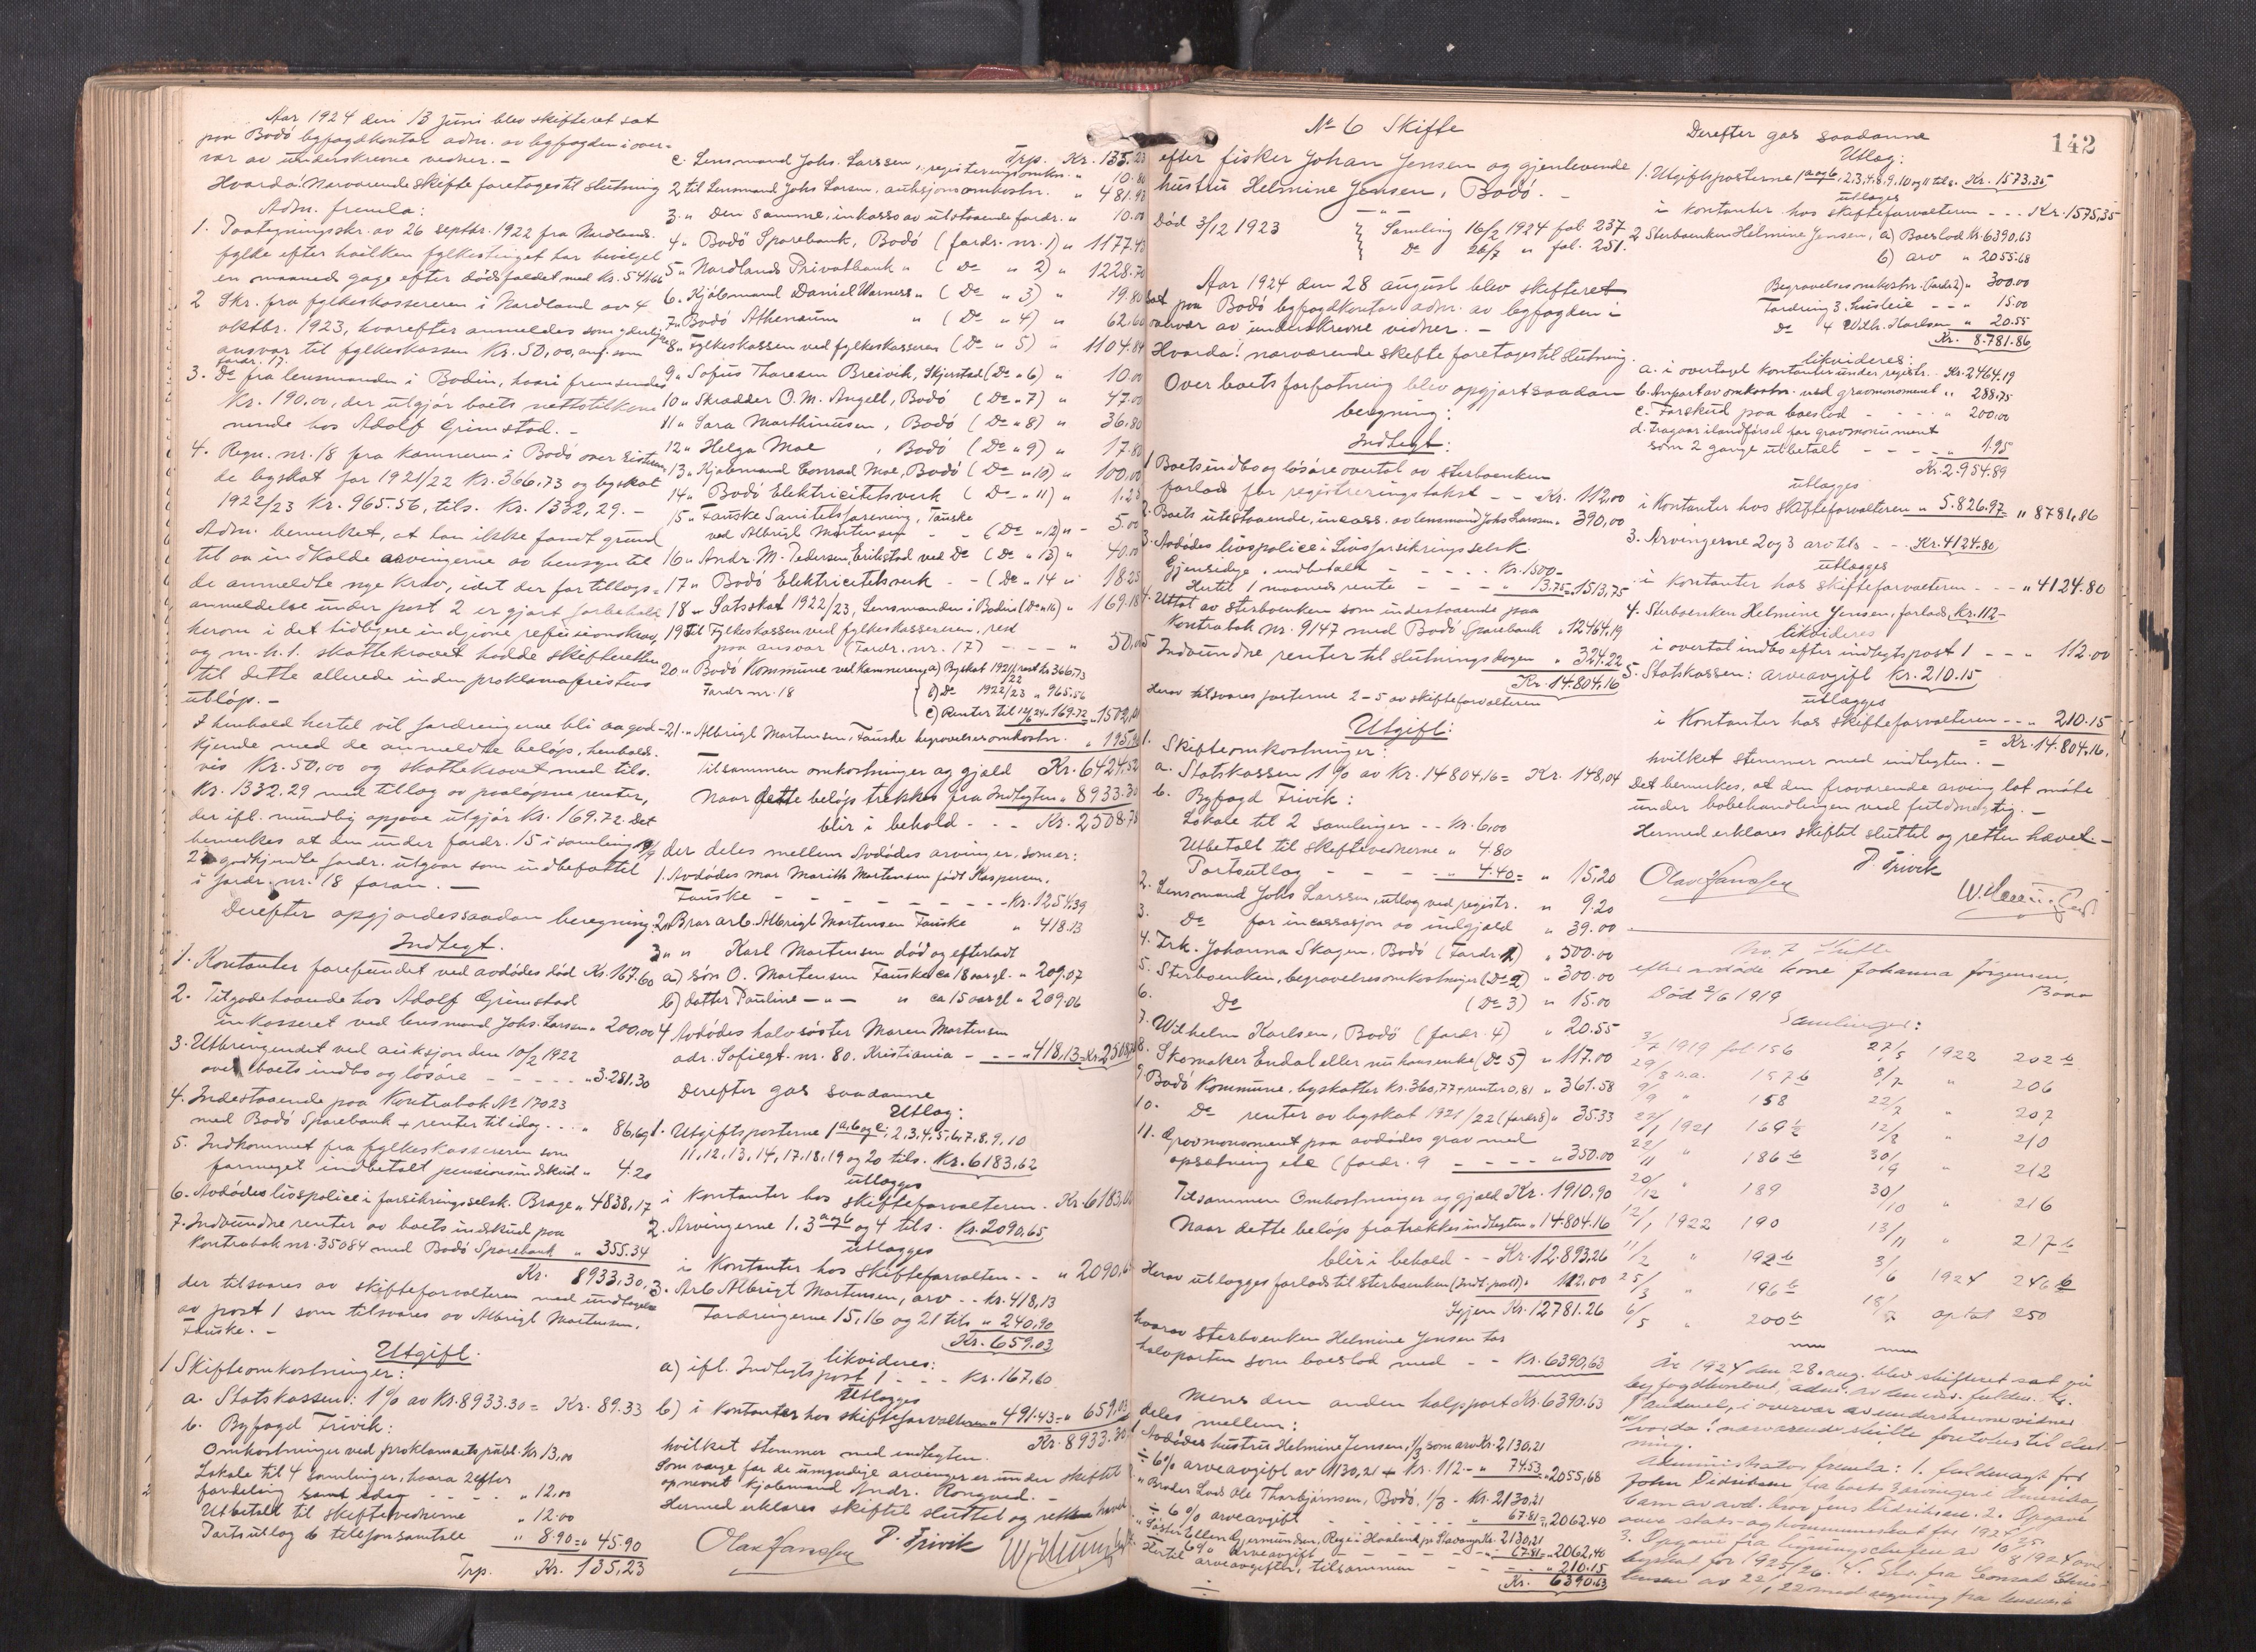 Aar 1924 den 13 juni blev skifteret sat
paa Bodö byfogdkontor adm. av byfogden i over-
vær av underskrevne vidner. -
Hvorda! Nærværende skifte foretoges til slutning
Adm. fremla:
1. Paategningsskr. av 26 septbr. 1922 fra Nordlands
fylke efter hvilken fylkestinget har bevilget
en maaneds gage efter dödsfaldet med Kr. 541,66
2 Skr. fra fylkeskassereren i Nordland av 4
oktbr. 1923, hvorefter anmeldes som
ansvar til fylkeskassen Kr. 50,00, anf. som
fordr. 17.
3. Do fra lensmanden i Bodin, hvori fremsendes
Kr. 190.00, der utgjör boets nettotilkom-
mende hos Adolf Grimstad. -
4. Regn. nr. 18 fra kæmneren i Bodö over
de byskat for 1921/22 Kr. 366,73 og byskat
1922/23 Kr. 965.56, tils. Kr. 1332,29. -
Adm. bemerket, at han ikke fandt grund
til aa indkalde arvingerne av hensyn til
de anmeldte nye krav, idet der for tillægs-
anmeldelse under post 2 er gjort forbehold
herom i det tidligere indgivne refusionskrav,
og m. h. t. skattekravet hadde skifteretten
til dette allerede inden proklamafristens
utlöp. -
I henhold hertil vil fordringerne bli aa god-
kjende med de anmeldte belöp, henholds-
vis Kr. 50,00 og skattekravet med tils.
Kr. 1332.29 med tillæg av paalöpne renter,
der ifl. mundtlig opgave utgjör Kr. 169.72. Det
bemerkes at den under fordr. 15 i samling
22 godkjendte fordr. utgaar som indbefattet
i fordr. nr. 18 foran. -
Derefter opgjordes saadan beregning.
Indtegt.
1. Kontanter forefundet ved avdödes död Kr. 167.60
2. Tilgodehavende hos Adolf Grimstad
inkasseret ved lensmand Johs. Larssen " 200,00
3. Utbringendet ved auksjon den 10/2 1922
over boets indbo og lösöre - - - - - " 3.281,30
4. Indestaaende paa Kontrabok No 17023
med Bodö Sparebank + renter til idag - - " 86,69
5. Indkommet fra fylkeskassereren som
formeget indbetalt pensionsindskud " 4.20
6. Avdödes livspolice i forsikringsselsk. Brage " 4838,17
7. Indvundne renter av boets indskud paa
Kontrabok nr. 35084 med Bodö Sparebank " 355.34
Kr. 8933,30,
der tilsvares av skifteforvalteren med undtagelse
av post 1 som tilsvares av Albrigt Mortensen,
Fauske. -
Utgift.
1 Skifteomkostninger:
a. Statskassen: 1% av Kr. 8933.30 = Kr. 89.33
b. Byfogd Trivik:
Omkostninger ved proklamaets publ. Kr. 13,00
Lokale til 4 samlinger, hvora 2 efter
fordeling samt idag - - - " 12.00
Utbetalt til skiftevidnerne " 12.00
Portoutlog & telefonsamtale " 8.90 = " 45.90
Trp. Kr. 135,23
Trp. Kr. 135.23
c. Lensmand Johs. Larssen, registeringsomkn. " 10.80
2 til Lensmand Johs Larsen, auksjonsomkostn. " 481.93
3. " Den samme, inkasso av utstaaende fordr. " 10.00
4 " Bodö Sparebank, Bodö (fordr. nr. 1) " 1177.43
5 " Nordlands Privatbank " (Do " 2) " 1228.70
6. " Kjöbmand Daniel Warness " (Do " 3) " 19,80
7 " Bodö Athenæum " (Do " 4) " 62,60
8 " Fylkeskassen ved fylkeskassereren (Do " 5) " 1104.84
9 " Sofus Thoresen Breivik, Skjerstad (Do " 6) " 10.00
10 " Skrædder O. M. Angell, Bodö (Do " 7) " 47.00
11 " Sara Marthinusen, Bodö (Do " 8) " 36,80
12 " Helga Moe , Bodö (Do " 9) " 17.80
13 " Kjöbmand Conrad Moe, Bodö (Do " 10) " 100,00
14 " Bodö Elektricitetsverk (Do " 11) " 1.25
15 " Fauske Sanitetsforening, Fauske
ved Albrigt Mortensen - - (Do " 12) " 5.00
16 " Andr. M. Pedersen, Erikstad ved Do (Do " 13) " 40.00
17 " Bodö Elektricitetsverk - - (Do " 14 " 18.25
18 " Satsskat 1922/23, Lensmanden i Bodin (Do " 16) " 169.18
19 Til Fylkeskassen ved fylkeskassereren, rest
paa ansvar (Fordr. nr. 17) - - - - " 50,00
20 " Bodö Kommune ved kæmneren a) Byskat 1921/22 rest Kr 366.73
Fordr nr. 18 b) Do 1922/23 " 965.56
c) Renter til 12/6 24 " 169.72 = " 1502,01
21. " Albrigt Mortensen, Fauske begravelsesomkostn. " 195,90
Tilsammen omkostninger og gjæld Kr. 6424,52
Naar dette belöp trekkes fra Indtegten " 8933.30
blir i behold - - - Kr. 2508.78
der deles mellem Avdödes arvinger, som er:
1. Avdödes mor Marith Mortensen födt Kaspersen,
Fauske - - - - - - - - - Kr. 1254.39
2. Bror arb. Albrigt Mortensen Fauske " 418.13
3 " " Karl Mortensen död og efterladt
a) sön O. Mortensen Fauske ca 18 aar gl. " 209.07
b) datter Pauline - " - " ca 15 aar gl " 209.06
4 Avdödes halvsöster Maren Mortensen
adr. Sofiegt. nr. 80. Kristiania - - - - " 418,13 = Kr. 2508,78
Derefter gas saadanne
Utlog:
1. Utgiftsposterne 1 a, b og c, 2, 3, 4, 5, 6, 7, 8, 9, 10
11, 12, 13, 14, 17, 18, 19 og 20 tils. Kr. 6183,62
utlægges
i Kontanter hos skifteforvalteren. Kr. 6183,62
2. Arvingerne 1. 3 a og b og 4 tils. Kr. 2090,65
utlægges
i Kontanter hos skifteforvalten - - " 2090,65
3. Arb Albrigt Mortensen, arv - - Kr. 418,13
Fordringerne 15, 16 og 21 tils " 240,90
Kr. 659.03
likvideres:
a) ifl. Indtegtspost 1 - - - Kr. 167,60
Utlægges
b) i Kontanter hos skifteforvalteren " 491.43 = " 659,03
Kr. 8933.30
hvilket stemmer med indtegten.
Som værge for de umyndige arvinger er under skiftet
opnevnt kjöbmand Andr. Rongved. -
Hermed erklæres skiftet sluttet og retten hævet
Olav Hanssen P. Trivik
No 6 Skifte
efter fisker Johan Jensen og gjenlevende
hustru Helmine Jensen, Bodö. -
Död 3/12 1923 Samling 16/2 1924 fol. 237
Do 26/7 " fol. 251.
Aar 1924 den 28 august blev skifteret
sat paa Bodö byfogdkontor adm. av byfogden i
overvær av underskrevne vidner. -
Hvorda! nærværende skifte foretoges til slutning.
Over boets forfatning blev opgjort saadan
beregning:
Indtegt:
1 Boets indbo og lösöre overtat av sterboenken
forlods for registreringstakst - - Kr. 112,00
2. Boets utestaaende, incass. av lensmand Johs Larssen " 390,00
3. Avdödes livspolice i Livsforsikringsselsk.
Gjensidige, indbetalt - - - - Kr. 1500 -
Hertil 1 maaneds rente - - - " 13.75 = " 1513,75
4. Uttat av sterboenken som indestaaende paa
Kontrabok nr. 9147 med Bodö Sparebank " 12464,19
5 Indvundne renter til slutningsdagen " 324.22
Kr. 14.804,16
Herav tilsvares posterne 2-5 av skifteforvalteren
Utgift:
1. Skifteomkostninger:
a. Statskassen 1% av Kr. 14804.16 = Kr. 148,04
b. Byfogd Trivik:
Lokale til 2 samlinger - - Kr. 6,00
Utbetalt til skiftevidnerne " 4.80
Portoutlog - - - - - " 4.40 = " 15,20
2. Lensmand Johs Larssen, utlog ved registr. " 9.20
3. Do for incassasjon av indgjæld " 39.00
4. Frk. Johanna Skagen, Bodö (Fordr 1.) " 500.00
5. Sterboenken, begravelsesomkostninger (Do 2) " 300.00
6. Do (Do 3) " 15.00
7. Wilhelm Karlsen, Bodö (fordr. 4) " 20.55
8. Skomaker Endal eller nu hansenke (Do 5) " 117.00
9. Bodö Kommune, byskatter Kr. 360,77 + renter 0,81 " 361.58
10. Do renter av byskat 1921/22 (fordr 8) " 35.33
11. Gravmonument paa avdödes grav med
opsætning etc (fordr. 9 - - - - " 350.00
Tilsammen Omkostninger og gjæld Kr. 1910,90
Naar dette belöp fratrækkes indtegten " 14.804.16
blir i behold - - Kr. 12.893,26
Herav utlægges forlods til sterboenken (Indt. post 1) " 112.00
Igjen Kr. 12781.26
hvorav sterboenken Helmine Jensen tar
halvparten som boeslod med - - Kr. 6390,63
Mens den anden halvpart Kr. 6390.63
deles mellem:
1 Avdödes hustru Helmine Jensen, 1/3 som arv Kr. 2130,21
÷ 6% arveavgift av 1130,21 + Kr. 112 - " 74.53 = " 2055,68
" Broder Lods Ole Thorbjörnsen, Bodö, 1/3 - Kr. 2130,21
÷ 6% arveavgift - - - - " 67.81 = " 2062.40
" Söster Ellen Gjermundsen, Rege i Haaland pr Stavanger Kr. 2130,21
6% arveavgift - - - - " 67.81 = " 2062,40
Hertil arveavgifter, tilsammen - - " 210.15
Kr. 6390.63
142
Derefter gas saadanne
Utlog:
1. Utgiftsposterne 1 a og b, 2, 3, 4, 8, 9, 10 og 11 tils. Kr. 1573,35
utlægges
i Kontanter hos skifteforvalteren - - - Kr. 1575,35
2 Sterboenken Helmine Jensen, a) Boeslod Kr. 6390,63
b) arv " 2055.68
Begravelsesomkostn. (fordr 2) " 300.00
Fordring 3. husleie - - " 15.00
Do 4 Wilh. Karlsen " 20.55
Kr. 8.781.86
likvideres:
a. i overtagt Kontanter under registr. - Kr. 2464.19
b. Anpart av omkostn. ved gravmonument " 288.75
c. Forskud paa boeslod - - - - " 200.00
d. Fragt av ilandförsel for gravmonument
som 2 gange utbetalt - - - - " 1.95
Kr. 2.954.89
utlægges
i Kontanter hos skifteforvalteren " 5.826.97 = " 8781,86
3. Arvingerne 2 og 3 arv tils - - - Kr. 4124.80
utlægges
i Kontanter hos skifteforvalteren - - - " 4124.80
4. Sterboenken Helmine Jensen, forlods, Kr. 112 -
likvideres
i overtat indbo efter indtegtspost 1 - - - " 112.00
5. Statskassen: arveavgift Kr. 210.15
utlægges
i Kontanter hos skifteforvalteren - - - " 210.15
= Kr. 14.804,16.
hvilket stemmer med indtegten. -
Det bemerkes, at den fraværende arving lot möte
under bobehandlingen ved fuldmegtig. -
Hermed erklæres skiftet sluttet og retten hævet -
P. Trivik
Olav Hanssen
No. 7 Skifte
efter avdöde kone Johanna Jörgensen,
Bodö
Död 2/6 1919
Samlinger:
3/7 1919 fol 156 27/5 1922 202 b
29/8 s.a. 157 b 8/7 " 206
9/9 " 158 22/7 " 207
27/1 1921 169 b 12/8 " 210
22/11 " 186 b 30/9 " 212
20/12 " 189 30/10 " 216
12/1 1922 190 13/11 " 217 b
11/2 " 192 b 3/6 1924 246 b
25/3 " 196 b 18/7 optat 250
6/5 " 200 b
År 1924 den 28. aug. blev skifteret sat på
byfogdkontoret, adm. av
i overvær av underskrevne vidner
Hvorda! nærværende skifte foretokes til slut-
ning.
Administrator fremla: 1. fuldmagt for
John Didriksen fra boets 3 arvinger i Amerika,
barn av avd. bror Jens Didriksen. 2. Opgave
over stats- og kommuneskat for 1924/25
3. Opgave fra ligningschefen av 16/8 1924 over
byskat for 1925/26. 4. Skr. fra
av 22/1 22 med regning fra